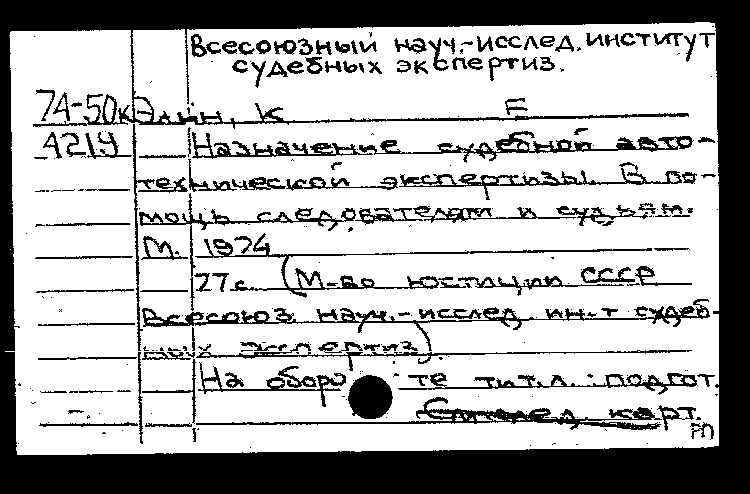 Всесоюзный науч.-исслед. институт
судебных экспертиз.
74-50к Элин, К Е
4219 Назначение судебной авто-
технической экспертизы. В по-
мощь следователям и судьям.
М. 1974
77 с. (М-во юстиции СССР
Всесоюз. науч.-исслед. ин-т судеб-
ных экспертиз).
На оборо те тит.л. : подгот.
карт.
РП